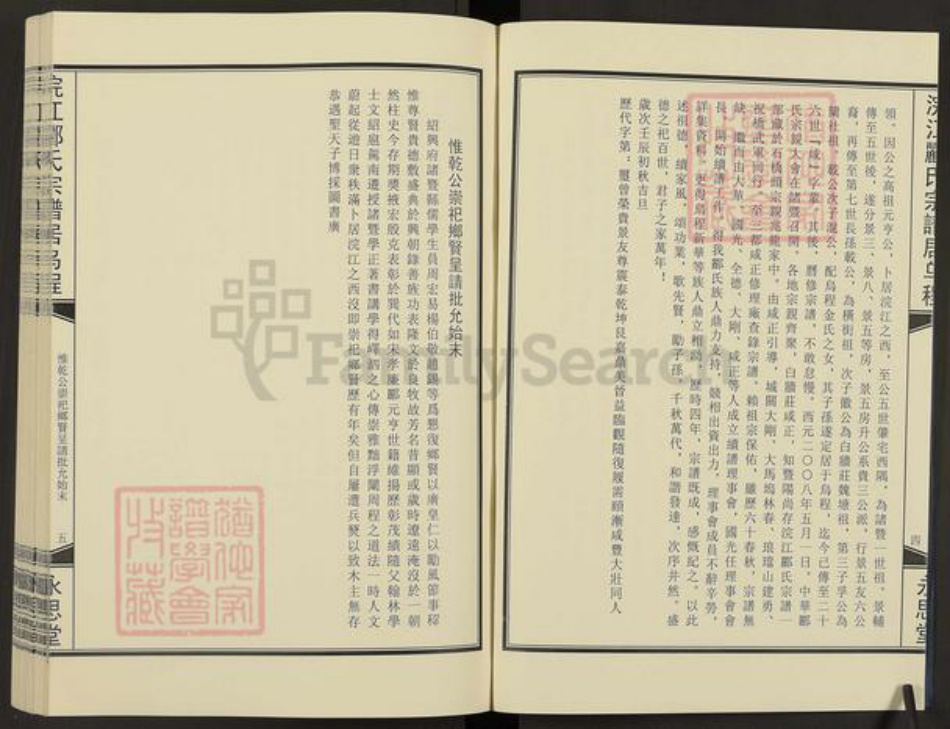 浣江酈氏宗譜居烏程
四
永思堂
領。因公之高祖元亨公，卜居浣江之西，至公五世肇宅西隅，為諸暨一世祖，景輔
傳至五世後，遂分景三、景八、景五等房，景五房升公系貴三公派，行景五友六公
裔，再傳至第七世長孫載公，為橫街祖，次子徽公為白牆莊魏塘祖，第三子孚公為
蘭社祖，載公次子混公，配烏程金氏之女，其子孫遂定居于烏程，迄今已傳至二十
六世「咸」字輩，其後，曆修宗譜，不敢怠慢。西元二〇〇八年五月一日，中華酈
氏宗親大會在諸暨召開，各地宗親齊聚，白牆莊咸正，知暨陽尚存浣江酈氏宗譜一
部藏於石橋頭宗親兆龍家中，由咸正引導，城關大剛，大馬塢林春、琅瑞山建勇、
祝橋武軍同行，至三都咸正修理廠查錄宗譜，賴祖宗保佑，雖歷六十春秋，宗譜無
缺，繼而由大華、國光、全德、大剛、咸正等人成立續譜理事會，國光任理事會會
長，開始續譜工作，得我酈氏族人鼎力支持，競相出資出力，理事會成員不辭辛勞，
詳集資料，更得烏程新華等族人鼎立相助，歷時四年，宗譜既成，感慨紀之，以此
述祖德，續家風，頌功業，歌先賢，勵子孫，千秋萬代，和諧發達，次序井然。盛
德之祀百世，君子之家萬年！
歲次壬辰初秋吉旦
歷代字第：璽曾榮貴景友尊震泰乾坤艮嘉鼎美晉益臨觀隨復履需頤漸咸豐大壯同人
惟乾公崇祀鄉賢呈請批允始末
紹興府諸暨縣儒學生員周宏易楊伯敬趙錫等爲懇復鄉賢以廣皇仁以勵風節事穆
惟尊賢貴德敷盛典於興朝錄善族功表隆文於良牧故芳名昔顯或歲時遼遠淹沒於一朝
然柱史今存期獎掖宏殷克表彰於異代如宋孝廉酈元亨世籍維揚歷彰茂績隨父翰林學
士文紹扈駕南遷授諸暨學正著書講學得嶧泗之心傳崇雅黜浮闡周程之道法一時人文
蔚起從遊日衆秩滿卜居浣江之西沒即崇祀鄉賢歷有年矣但自屢遭兵燹以致木主無存
恭遇聖天子博採圖書廣
浣江酈氏宗譜居烏程
惟乾公崇祀鄉賢呈請批允始末
五
永思堂
FamilySearch